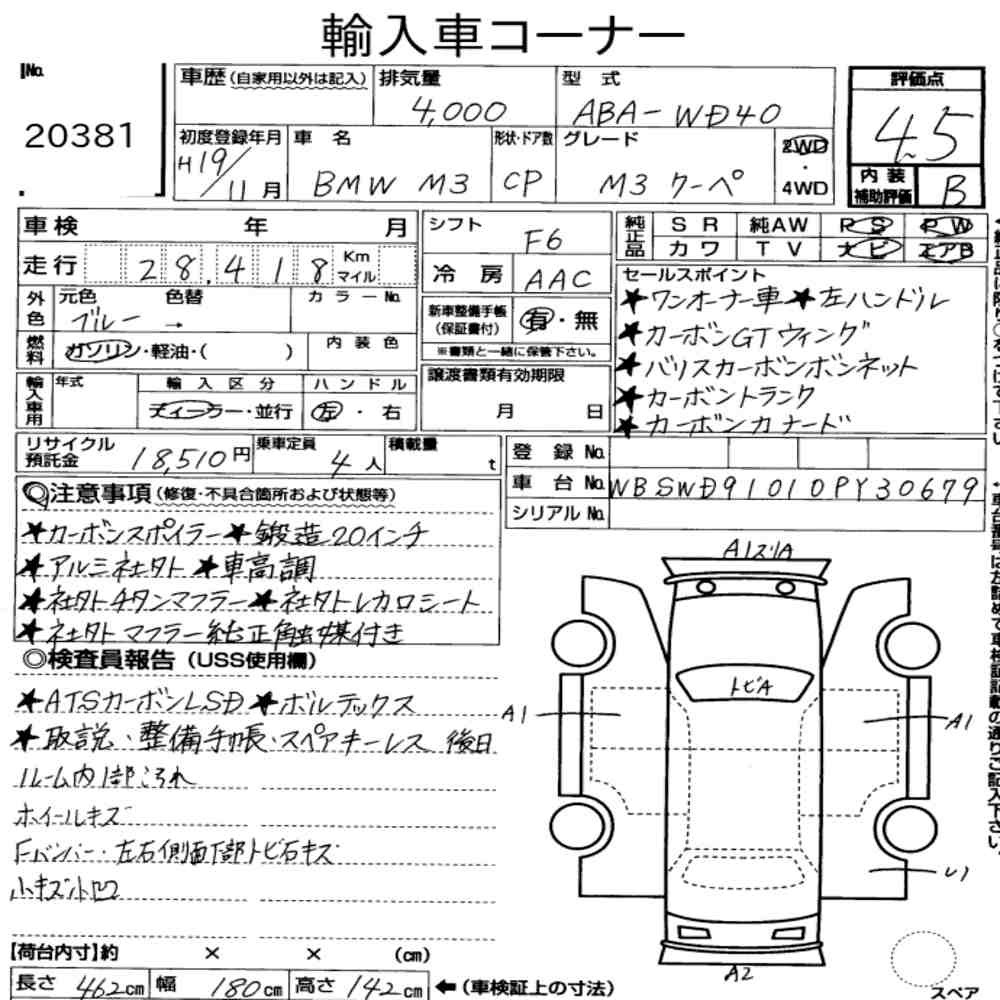 輸入車コーナー
No.
20381
車歴(自家用以外は記入)
排気量
4,000
型 式
ABA-WD40
評価点
4.5
初度登録年月
H19/11月
車 名
BMW M3
形状・ドア数
CP
グレード
M3 クーペ
2WD
・
4WD
内装
補助評価
B
車検 年 月
走行 28,418 Km
マイル
外色
元色 色替
ブルー →
カラーNo.
燃料
ガソリン・軽油・( )
内装色
輸入車用
年式
輸入区分
ディーラー・並行
ハンドル
左・右
シフト
F6
冷 房
AAC
新車整備手帳
(保証書付)
有・無
※書類と一緒に保管下さい。
譲渡書類有効期限
月 日
純正品
SR 純AW PS PW
カワ TV ナビ エアB
セールスポイント
★ワンオーナー車★左ハンドル
★カーボンGTウィング
★バリスカーボンボンネット
★カーボントランク
★カーボンカナード
リサイクル
預託金
18,510円
乗車定員
4人
積載量
t
登 録 No.
車 台 No. WBSWD91010PY30679
シリアル No.
◎注意事項(修復・不具合箇所および状態等)
★カーボンスポイラー★鍛造20インチ
★アルミ社外★車高調
★社外チタンマフラー★社外レカロシート
★社外マフラー純正触媒付き
◎検査員報告(USS使用欄)
★ATSカーボンLSD★ボルテックス
★取説・整備手帳・スペアキーレス 後日
ルーム内1部ごれ
ホイールキズ
Fバンパー・左右側面下部トビ石キズ
小キズ小凹
A1スリA
トビA
A1
A1
U1
A2
スペア
【荷台内寸】約 × × (cm)
長さ 462cm 幅 180cm 高さ 142cm ←(車検証上の寸法)